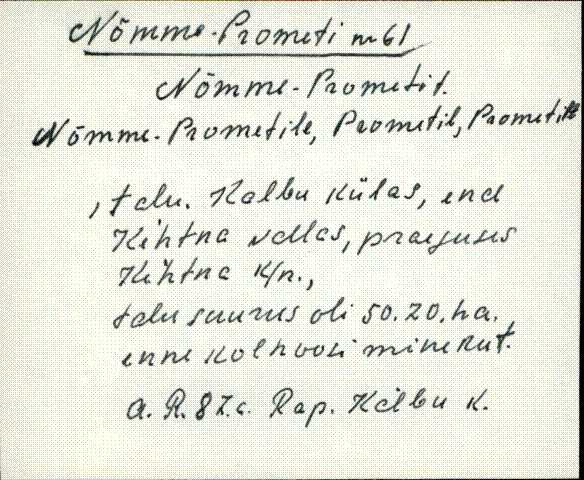 Nõmme-Prometi nr 61
Nõmme-Prometit.
Nõmme-Prometile, Prometil, Prometilt
, talu. Kalbu külas, end
Kehtna vallas, praeguses
Kehtna k/n.,
talu suurus oli 50.20.ha.
enne kolhoosi minekut.
A. R. 87.a. Rap. Kalbu k.